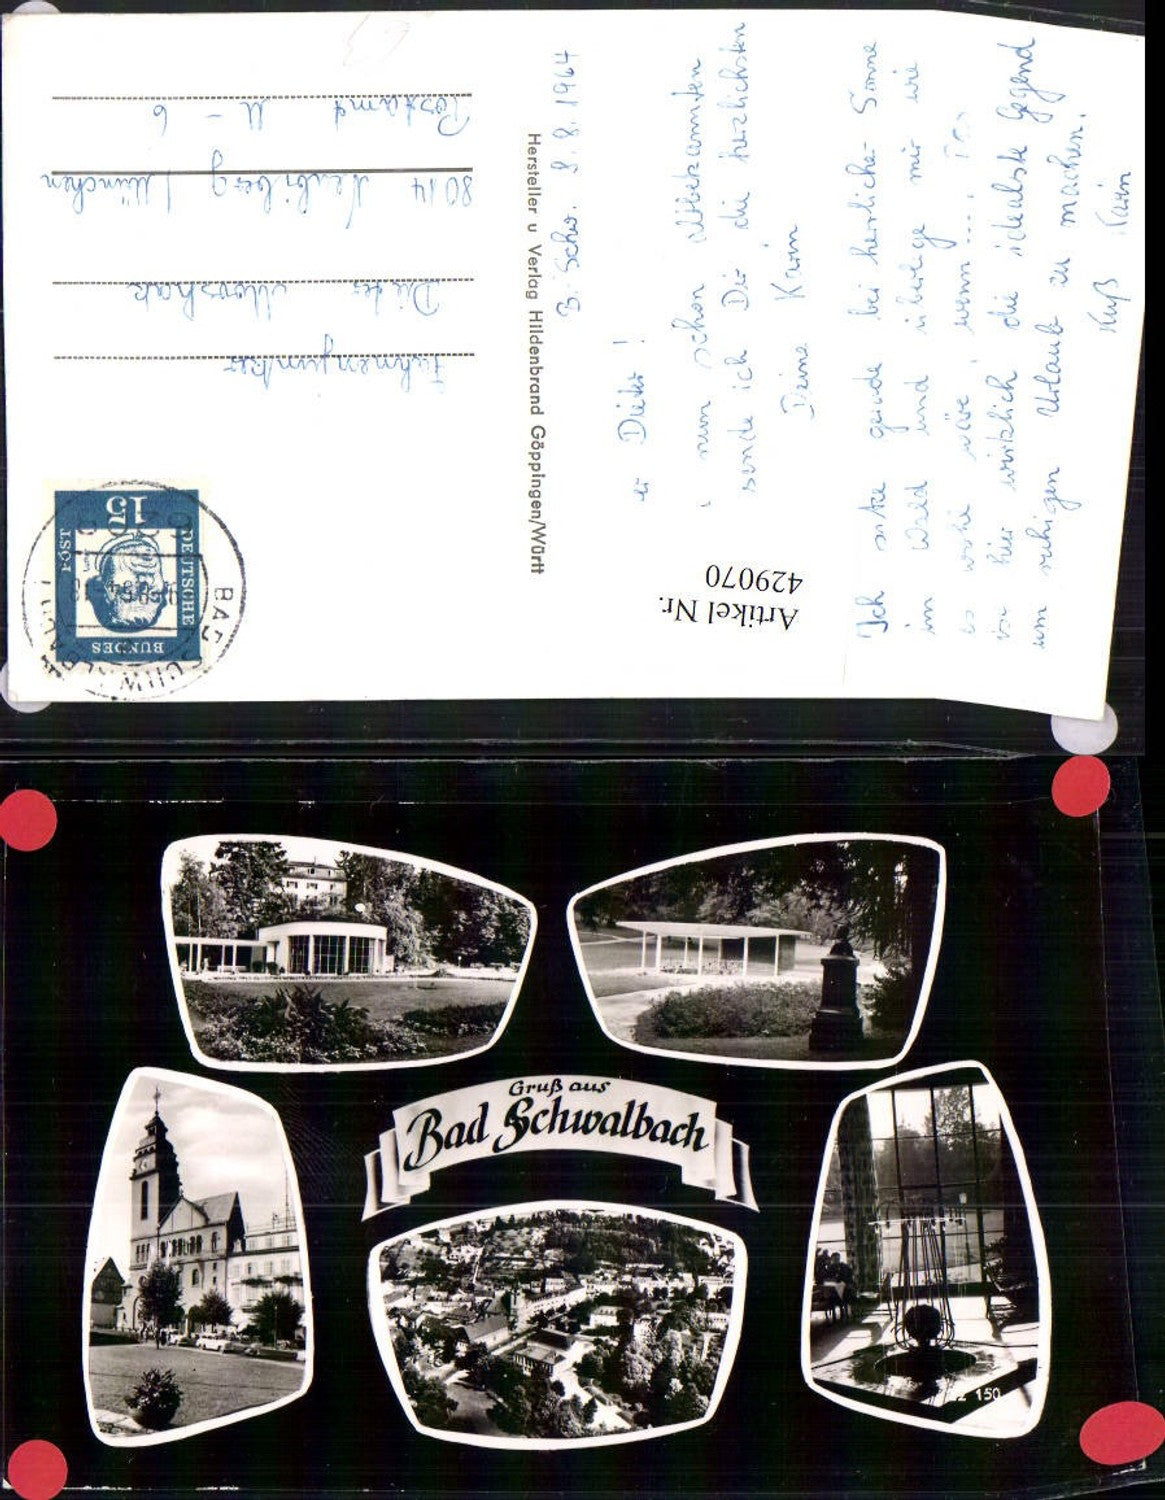 B. Schw. 9.8.1964
Dieter!
nun schon altbekannten
sende ich Dir die herzlichsten
Deine Karin
Ich sitze gerade bei herrlicher Sonne
im Wald und überlege mir wie
es wohl wäre, wenn....
hier wirklich die idealste Gegend
um ruhigen Urlaub zu machen.
Kuß Karin
Hersteller u Verlag Hildenbrand Göppingen/Württ
Fahnenjunker
Dieter
8014 Neubiberg / München
Postamt U-6
DEUTSCHE
BUNDES
POST
15
BAD SCHWALBACH
Artikel Nr.
429070
Gruß aus
Bad Schwalbach
150